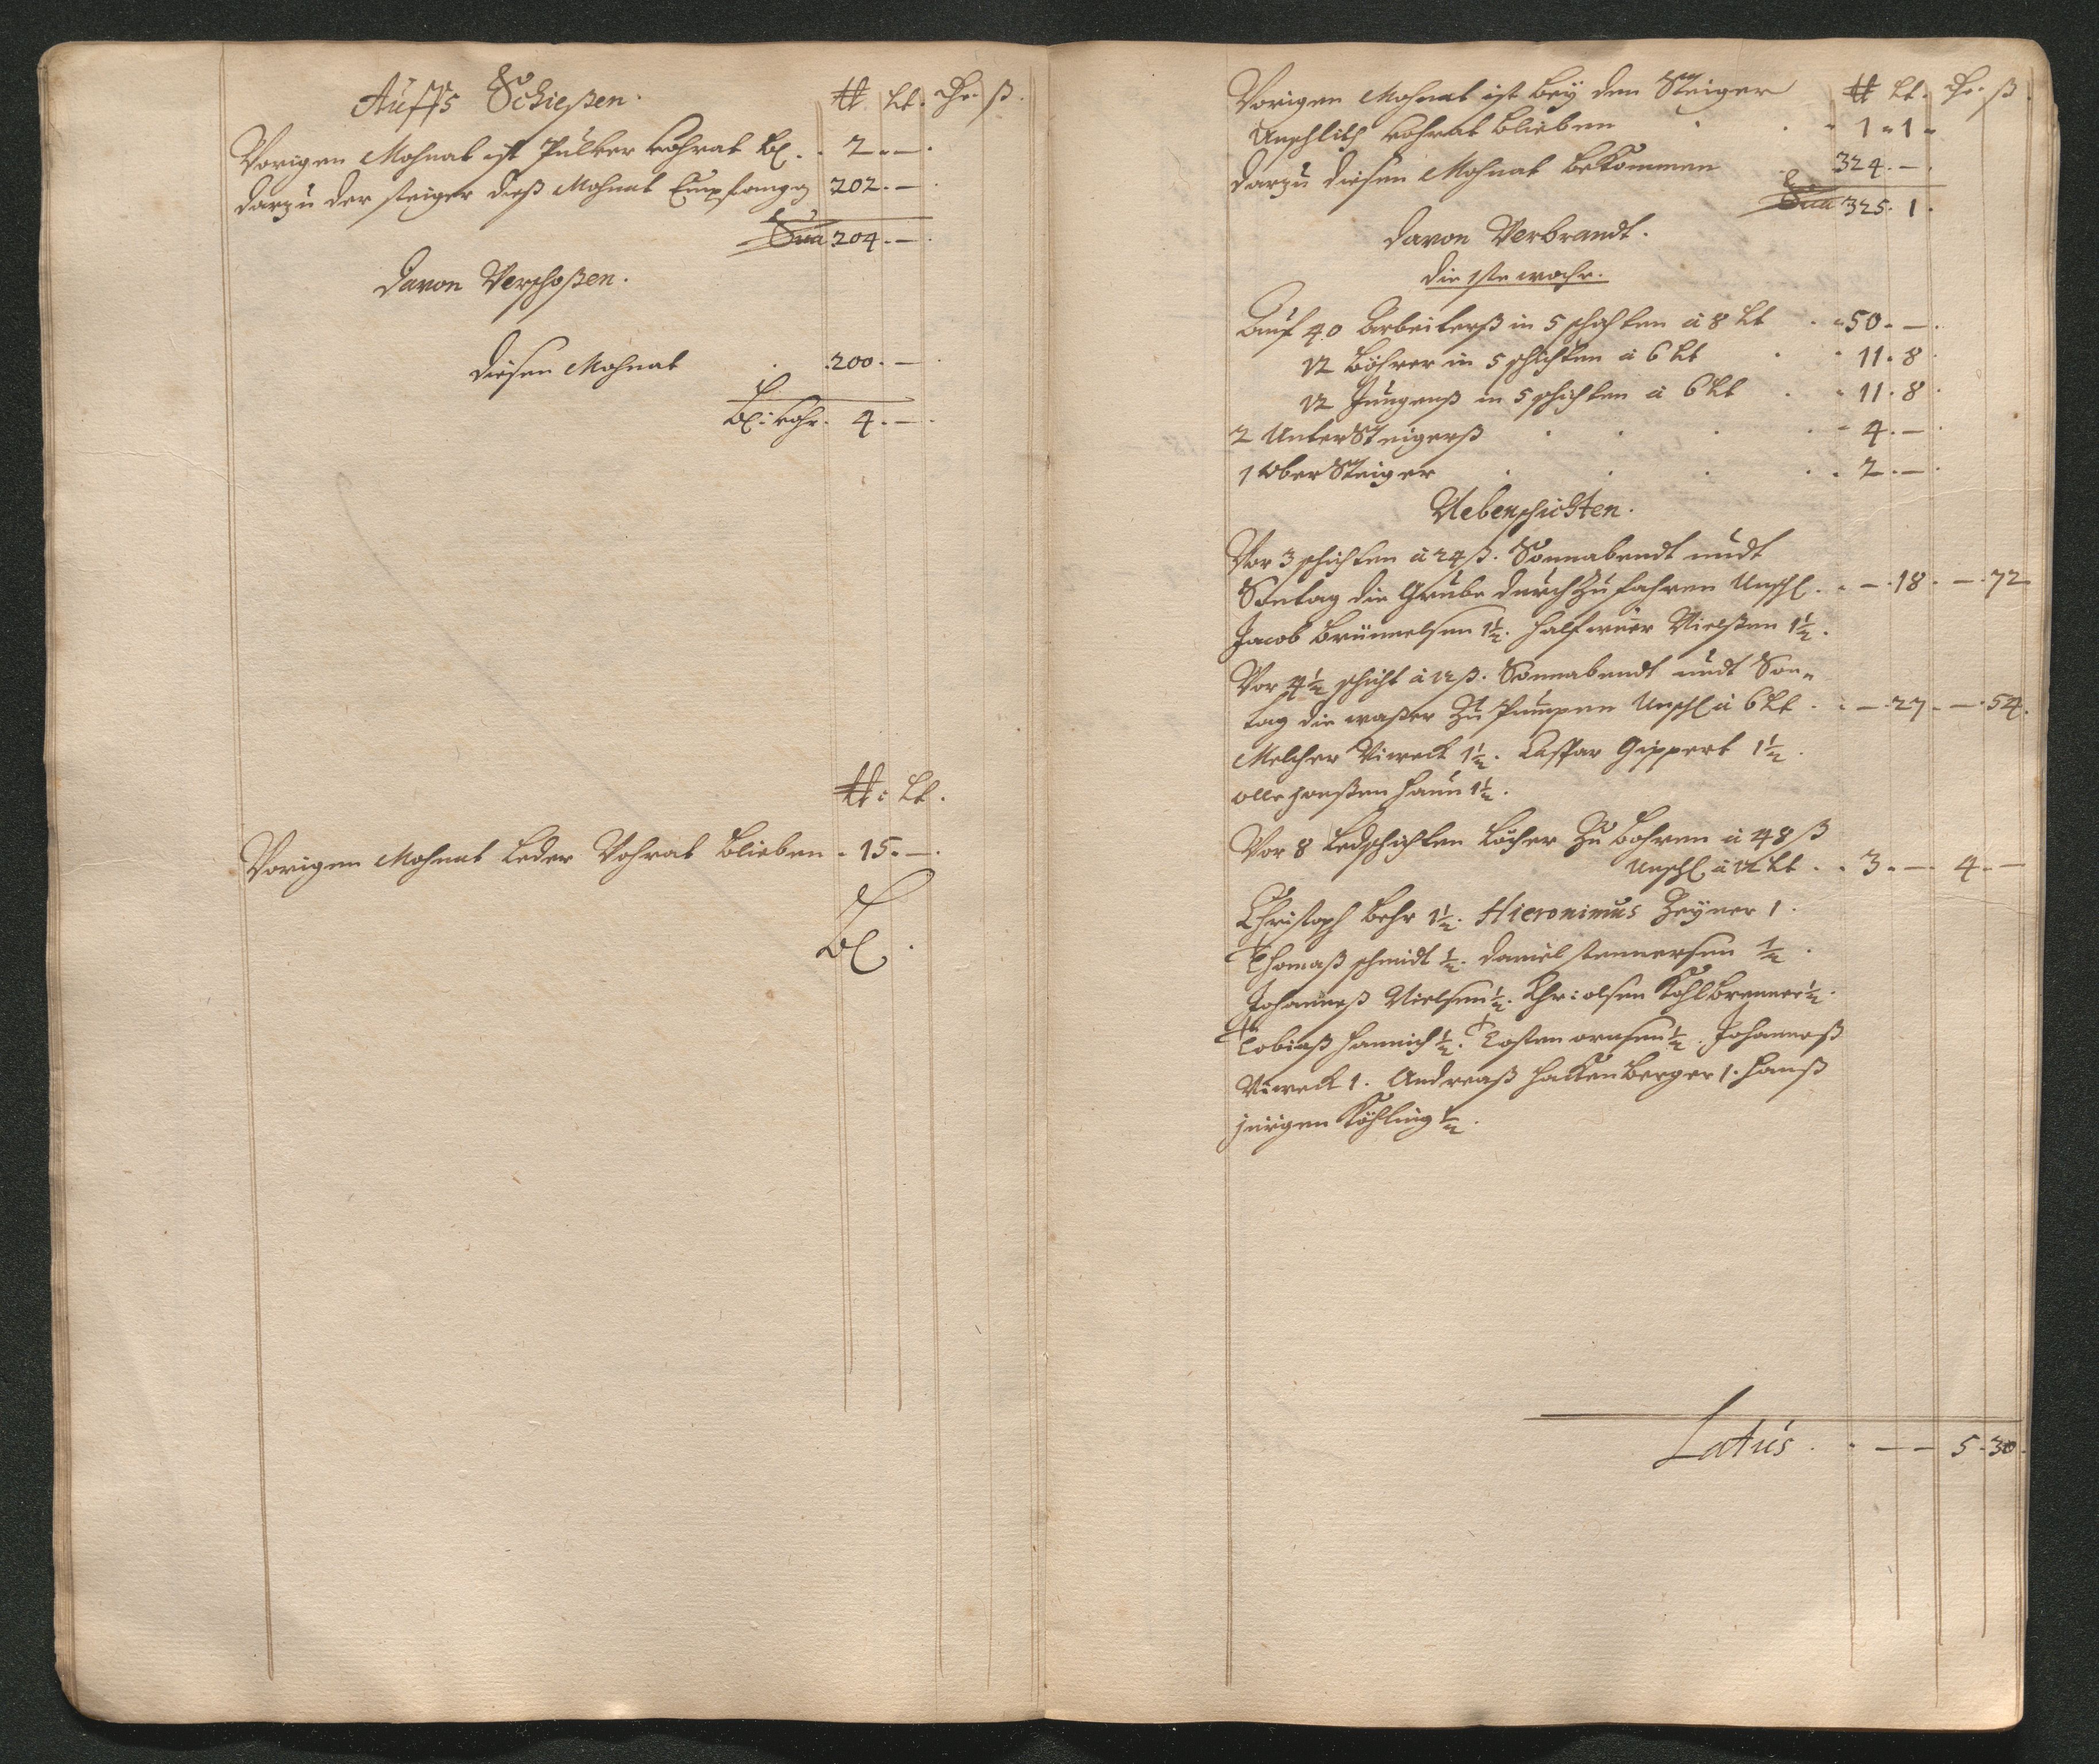 Auffs Schießen. ℔. Lt. Thr. ß.
Vorigen Mohnat ist Pulver vohrat bl. . 2 . — .
darzu der steiger dieß Mohnat Empfangen 202 . — .
Sua 204 . — .
davon Verschoßen.
diesen Mohnat . . 200 . — .
bl: vohr. 4 . — .
℔: Lt.
Vorigen Mohnat Leder Vohrat blieben . 15 . — .
bl .
Vorigen Mohnat ist bey dem Steiger ℔ Lt. Thr. ß.
Unschlich vohrat blieben . . . 1 . 1 .
darzu diesen Mohnat bekommen . 324 . — .
Sua 325 . 1 .
davon Verbrandt.
die 1ste woche.
auf 40 Arbeiterß in 5 schichten à 8 Lt . . 50 . — .
12 Böhrer in 5 schichten à 6 Lt . . 11 . 8 .
12 Jungenß in 5 schichten à 6 Lt . . 11 . 8 .
2 UnterSteigerß . . . . 4 . — .
1 OberSteiger . . . . 2 . — .
Nebenschichten.
Vor 3 schichten à 24 ß. Sonnabendt undt
Sontag die Grube durch Zu fahren Unschl. . — . 18 . — . 72
Jacob Brünnelsen 1½. Halfwer Nielßen 1½.
Vor 4½ schicht à 12 ß. Sonnabendt undt Son-
tag die waßer Zu Pumpen Unschl à 6 Lt . . — . 27 . — . 54.
Melcher Viweck 1½. Caspar Gippert 1½.
olle Joenßen Haun 1½.
Vor 8 Ledschichten Löcher Zu bohren à 48 ß
Unschl à 12 Lt . . 3 . — 4 . —
Christoph Behr 1½. Hieronimus Zeyner 1.
Thomaß schmidt ½. Daniel stennersen ½.
Johanneß Nielsen ½. Chri: olsen Kohlbrenner ½.
Tobiaß Hannich ½. Tosten arnesen ½. Johanneß
Viweck 1. Andreaß Hackenberger 1. Hanß
jürgen Köhling ½.
Latus . . — — 5 . 30.